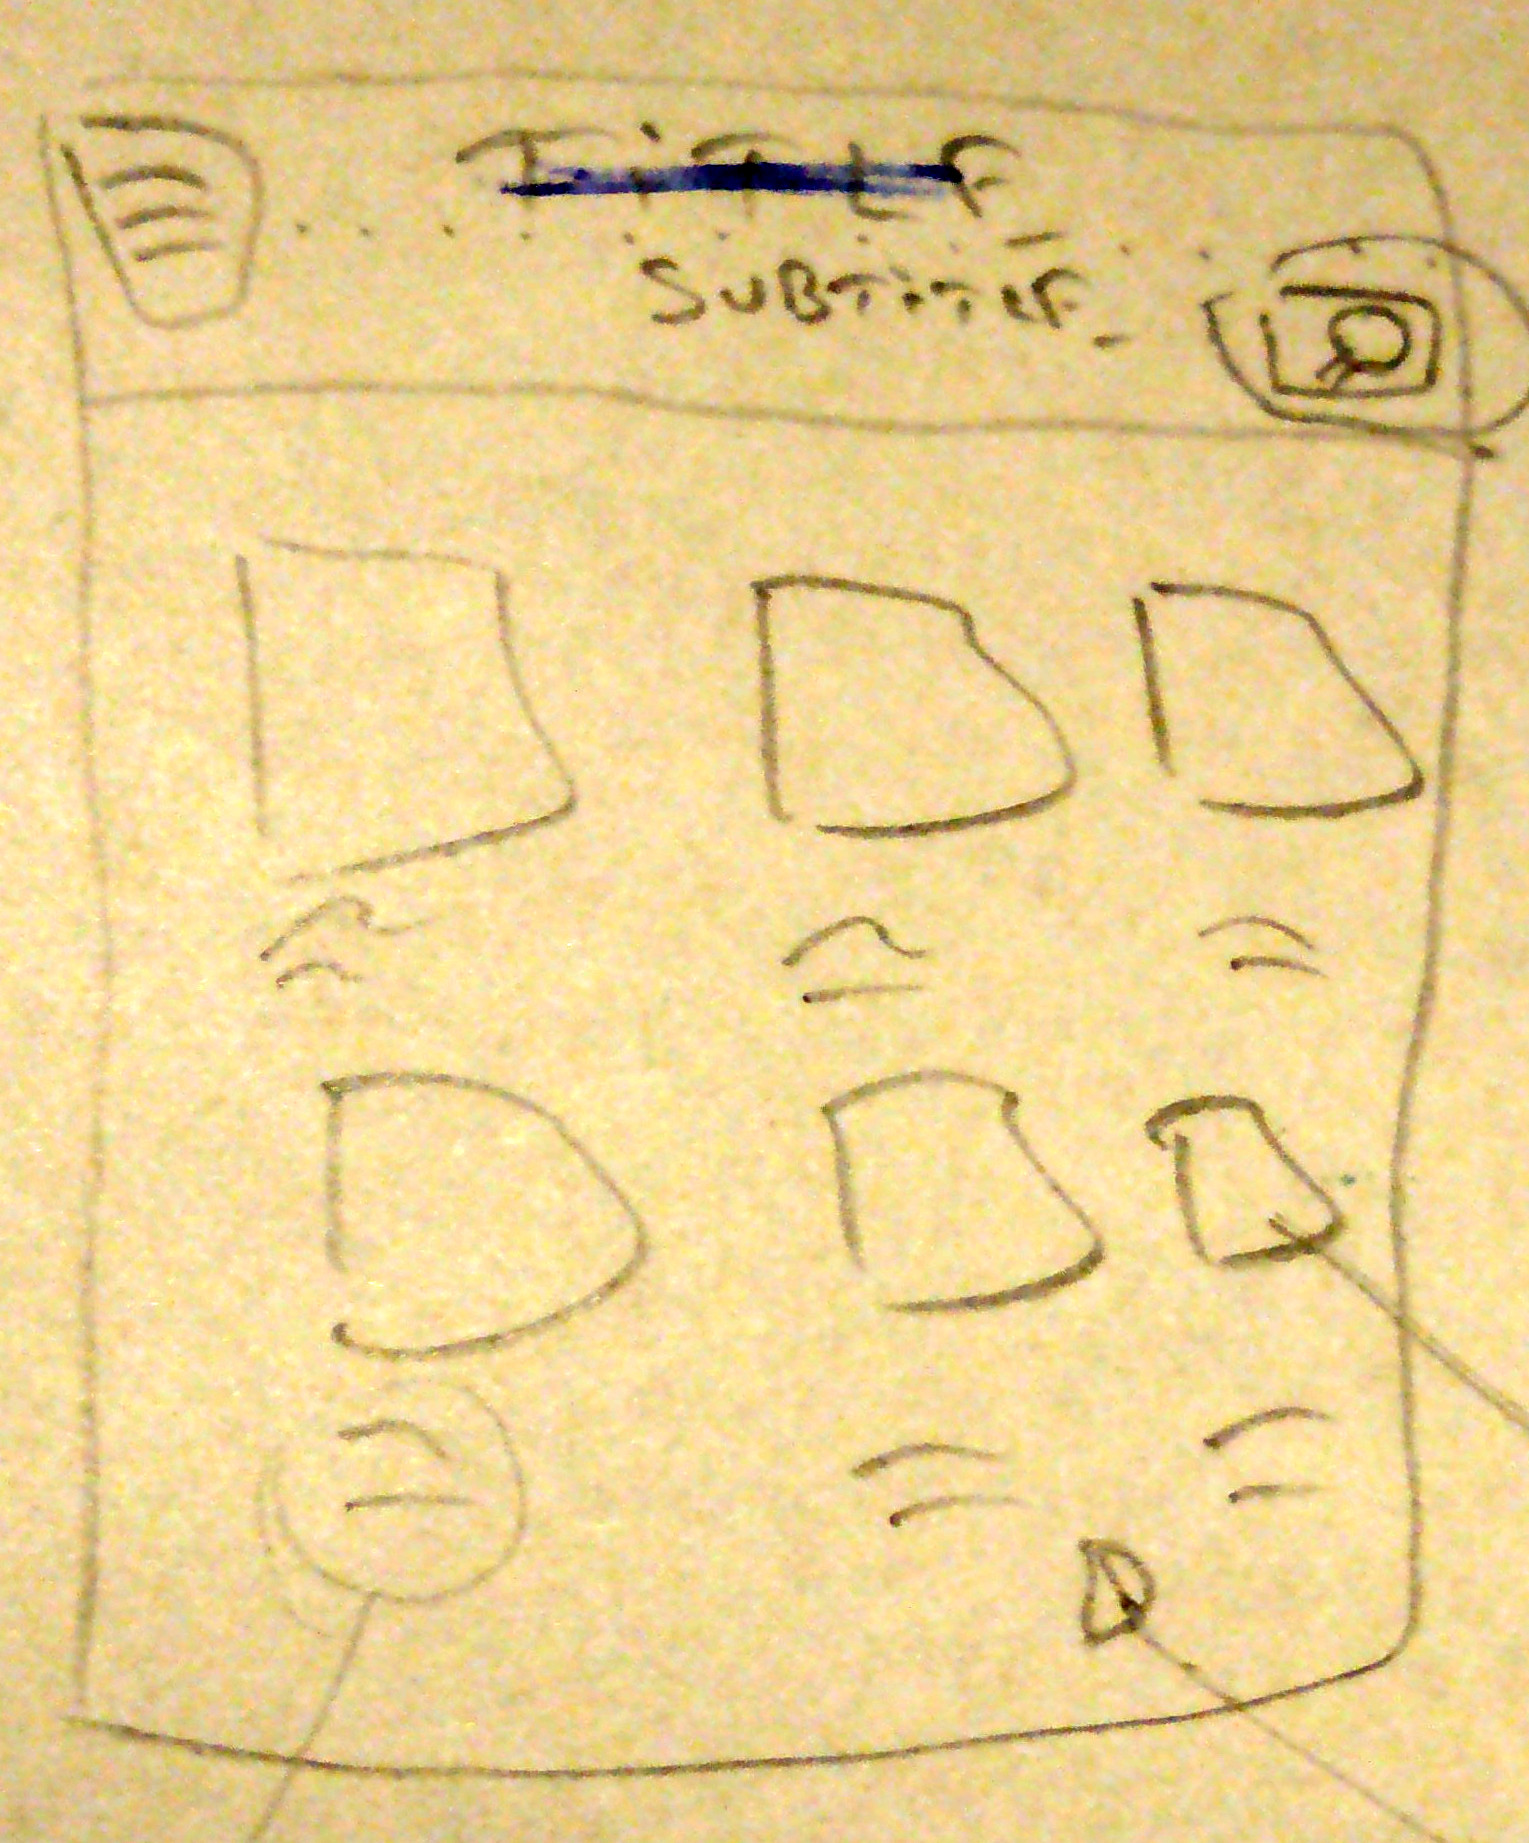 TiTLE
SUBTiTLE